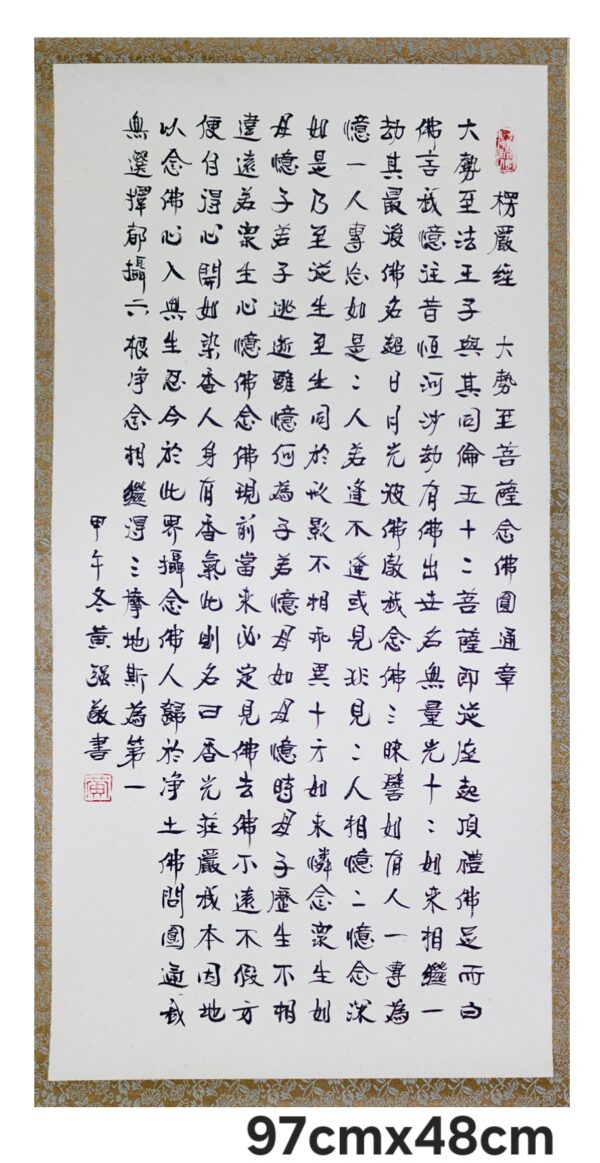 楞嚴經 大勢至菩薩念佛圓通章
大勢至法王子與其同倫五十二菩薩即從座起頂禮佛足而白
佛言我憶往昔恒河沙劫有佛出世名無量光十二如來相繼一
劫其最後佛名超日月光彼佛教我念佛三昧譬如有人一專為
憶一人專忘如是二人若逢不逢或見非見二人相憶二憶念深
如是乃至從生至生同於形影不相乖異十方如來憐念眾生如
母憶子若子逃逝雖憶何為子若憶母如母憶時母子歷生不相
違遠若眾生心憶佛念佛現前當來必定見佛去佛不遠不假方
便自得心開如染香人身有香氣此則名曰香光莊嚴我本因地
以念佛心入無生忍今於此界攝念佛人歸於净土佛問圓通我
無選擇都攝六根净念相繼得三摩地斯為第一
甲午冬黃强敬書
97cmx48cm